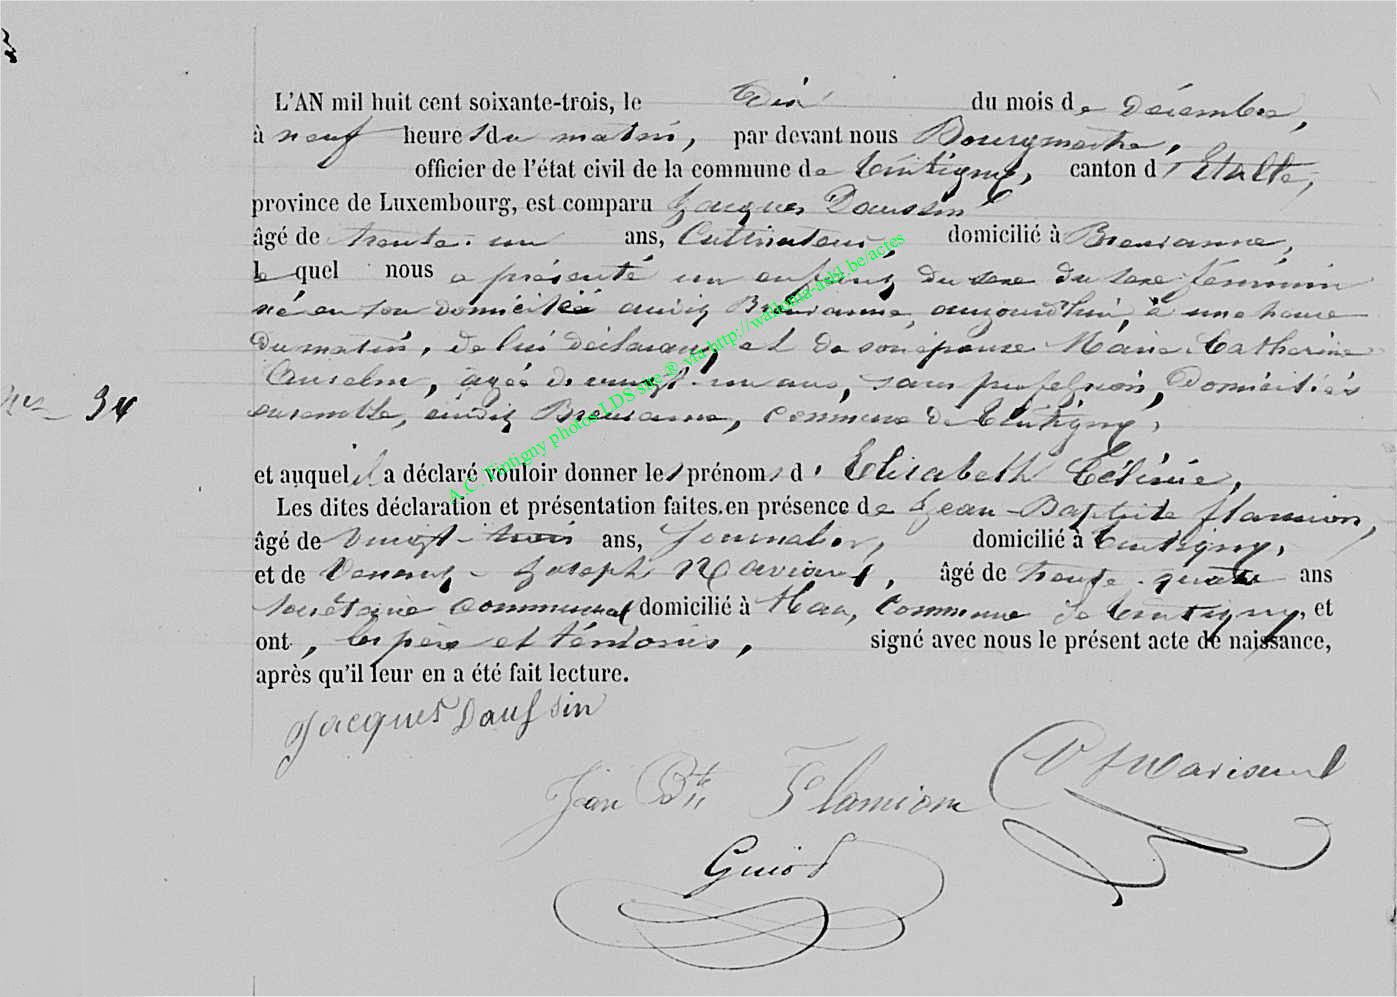 L'AN mil huit cent soixante-trois, le dix du mois de décembre,
à neuf heures du matin, par devant nous Bourgmestre,
officier de l'état civil de la commune de Tintigny, canton d'Etalle,
province de Luxembourg, est comparu Jacques Daussin
âgé de trente-un ans, Cultivateur domicilié à Breuvanne,
lequel nous a présenté un enfant du sexe du sexe féminin
né en son domicile audit Breuvanne, aujourd'hui, à une heure
du matin, de lui déclarant et de son épouse Marie Catherine
Anselme, agée de vingt-un ans, sans profession, Domiciliés
ensemble, audit Breuvanne, commune de Tintigny,
Nes 34
et auquel il a déclaré vouloir donner les prénoms d' Elisabeth Célinie,
Les dites déclaration et présentation faites en présence de Jean-Baptiste Flamion,
âgé de Vingt-trois ans, Journalier, domicilié à Tintigny,
et de Joseph âgé de trente-quatre ans
Secrétaire communal domicilié à Han, Commune de Tintigny, et
ont, les père et témoins, signé avec nous le présent acte de naissance,
après qu'il leur en a été fait lecture.
Jacques Daussin
Jean Bte Flamion
Guiot
A.C. Tintigny photos LDS site ® via http://wallonia-asbl.be/actes